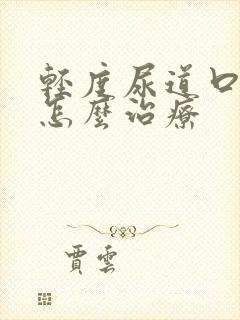 輕度尿道口
怎麼治療
賈雲